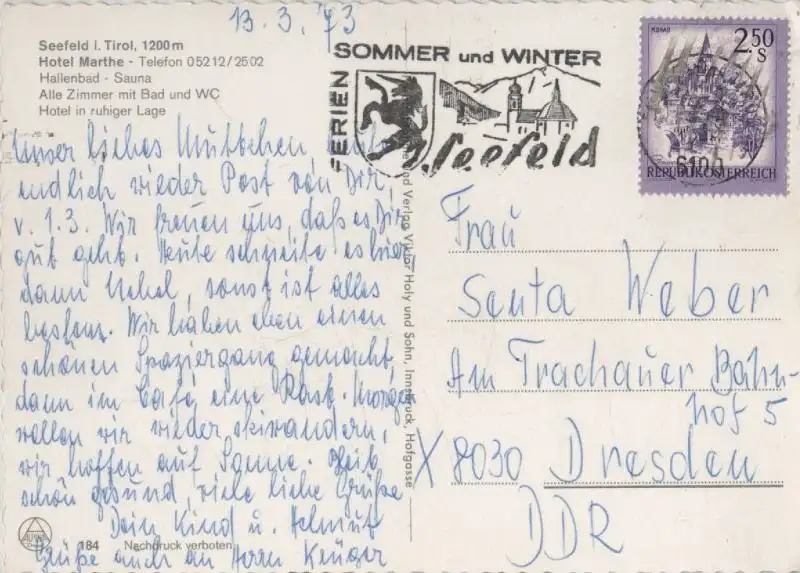 13.3.'73
Seefeld i. Tirol, 1200 m
Hotel Marthe - Telefon 05212/2502
Hallenbad - Sauna
Alle Zimmer mit Bad und WC
Hotel in ruhiger Lage
FERIEN
SOMMER und WINTER
Seefeld
2.50
S
6100
REPUBLIK ÖSTERREICH
Unser liebes Muttchen,
endlich wieder Post von Dir,
v. 1.3. Wir freuen uns, daß es Dir
gut geht. Heute schneite es hier
dann Nebel, sonst ist alles
bestens. Wir haben eben einen
schönen Spaziergang gemacht,
dann im Café eine Rast. Morgen
wollen wir wieder skiwandern,
wir hoffen auf Sonne. Bleib
schön gesund, viele liebe Grüße
Dein Kind u. Helmut
Grüße auch an Herrn Krüger
Verlag Viktor Hofy und Sohn, Innsbruck, Hofgasse
Frau
Senta Weber
Am Trachauer Bahn-
hof 5
X 8030 Dresden
DDR
184 Nachdruck verboten